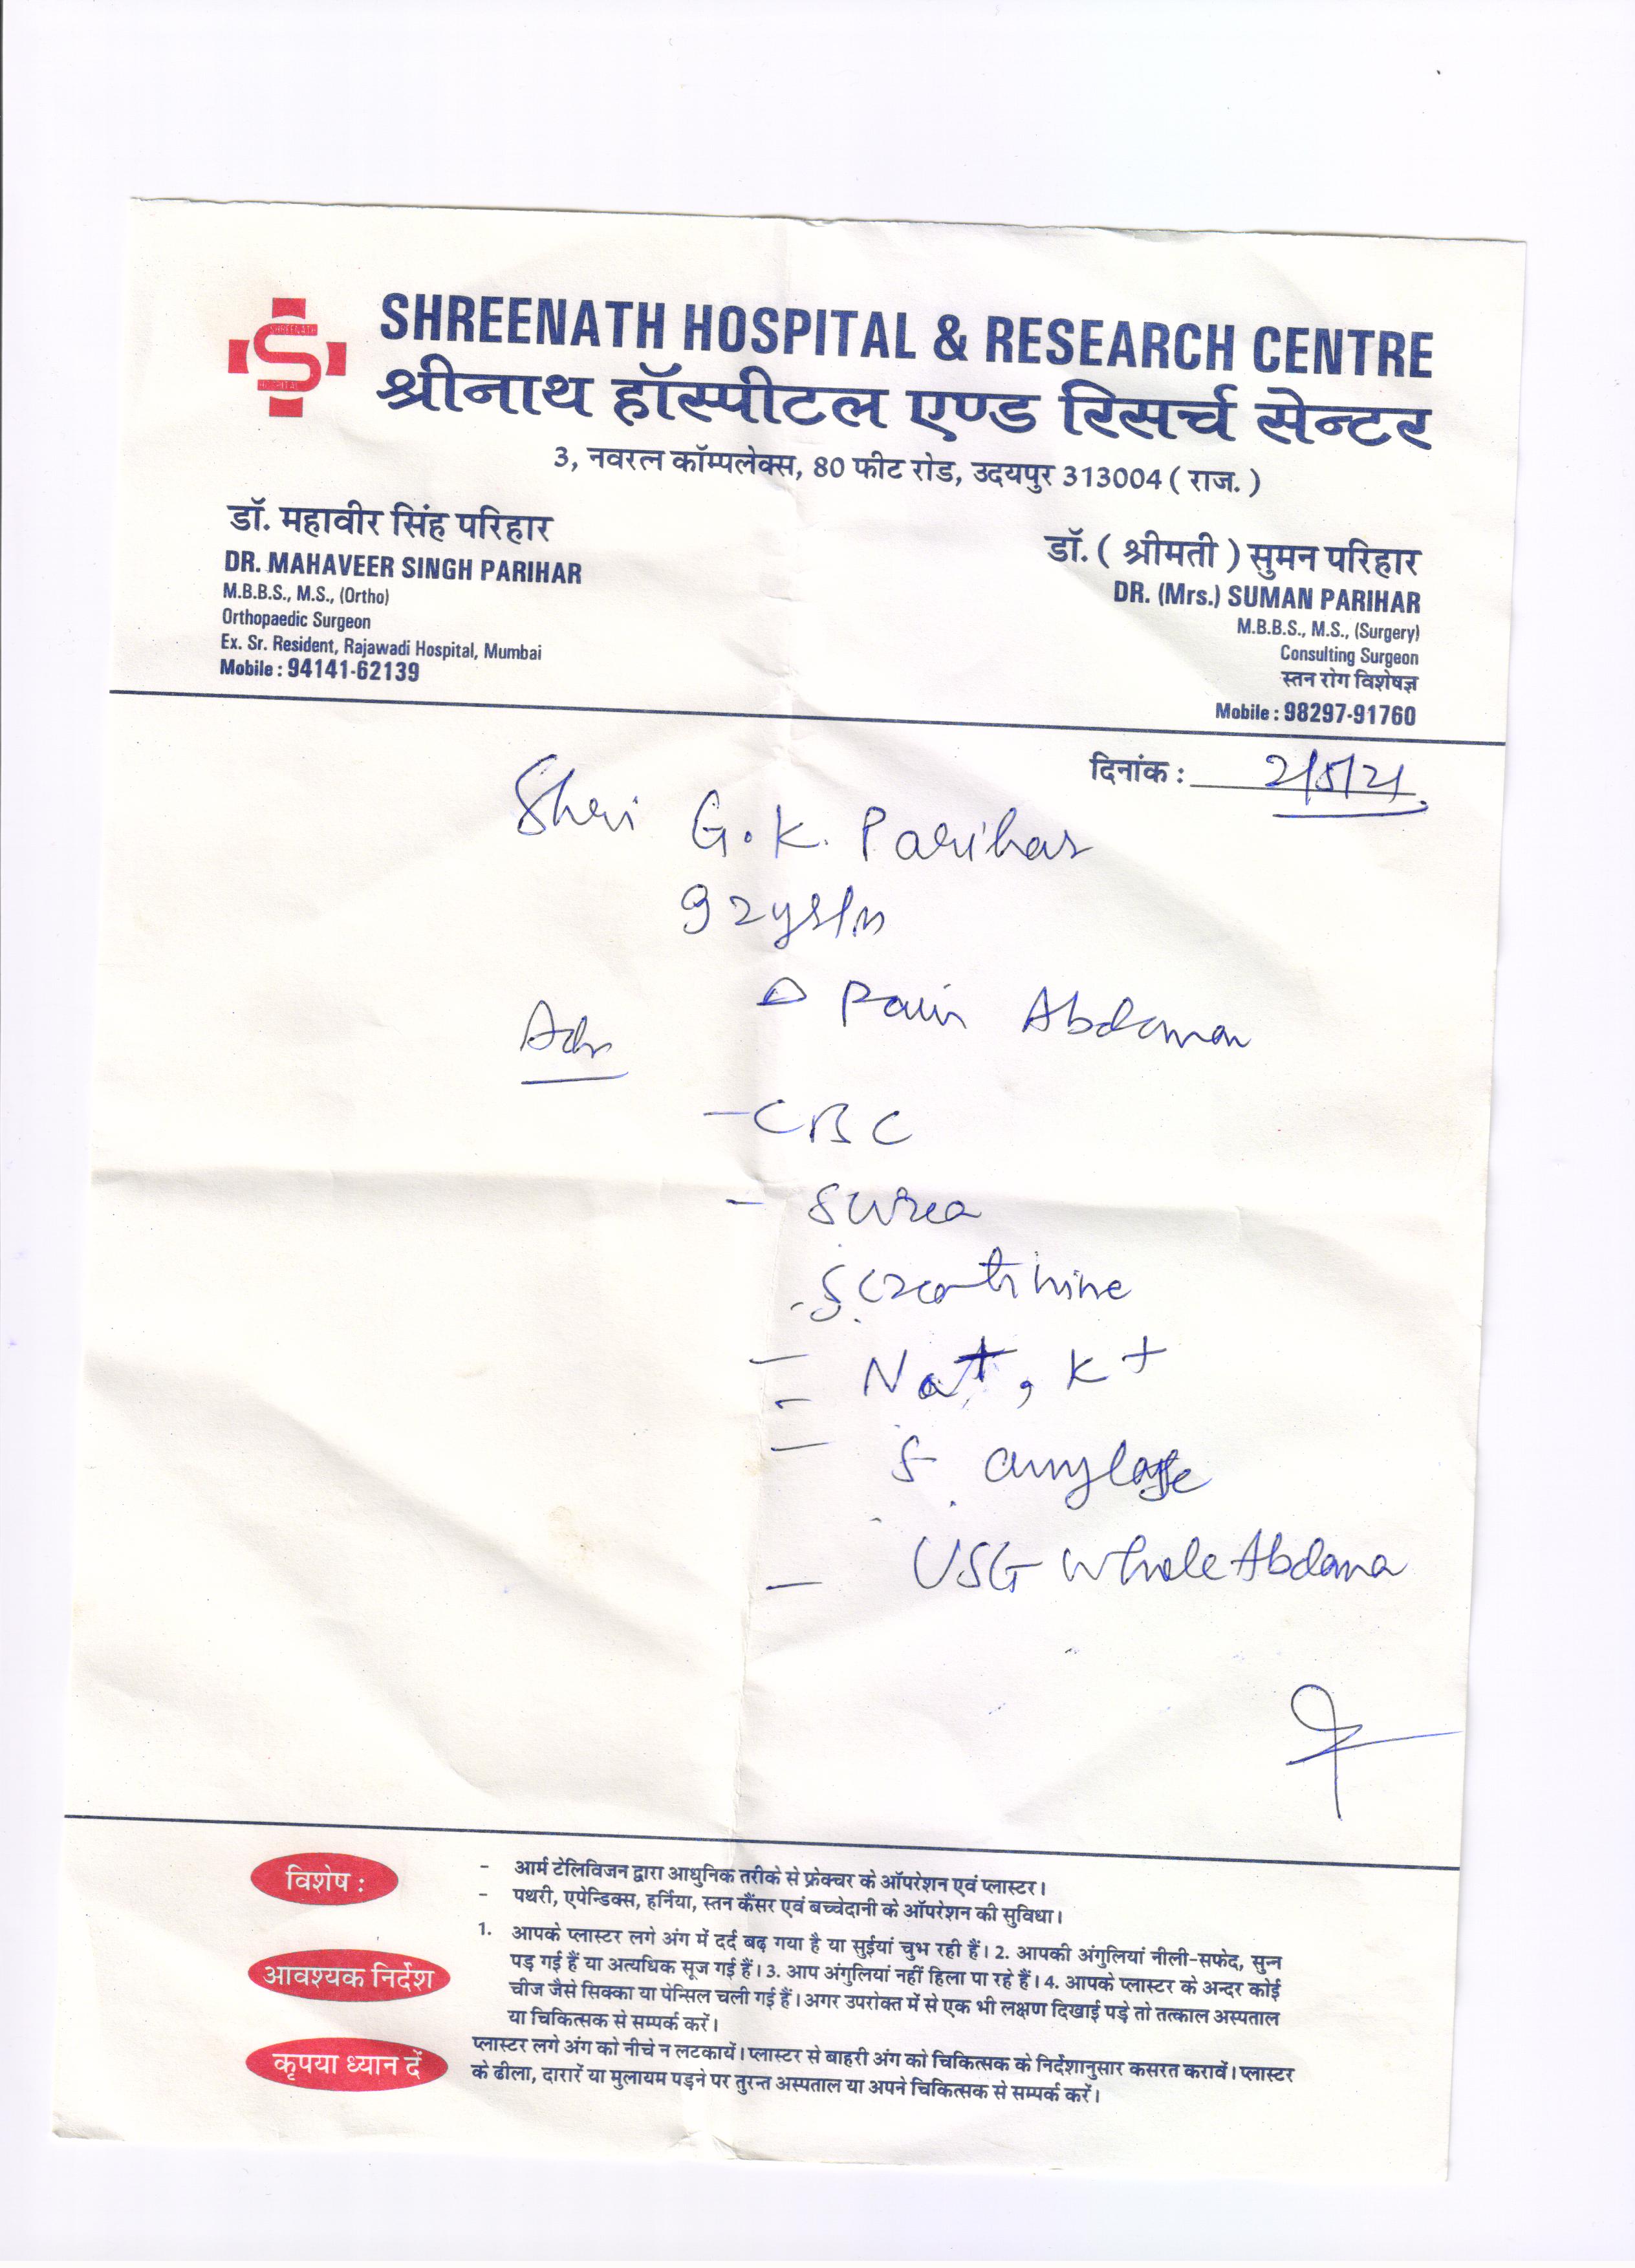 SHREENATH HOSPITAL & RESEARCH CENTRE
श्रीनाथ हॉस्पीटल एण्ड रिसर्च सेन्टर
3, नवरत्न कॉम्पलेक्स, 80 फीट रोड, उदयपुर 313004 ( राज. )
डॉ. महावीर सिंह परिहार
DR. MAHAVEER SINGH PARIHAR
M.B.B.S., M.S., (Ortho)
Orthopaedic Surgeon
Ex. Sr. Resident, Rajawadi Hospital, Mumbai
Mobile : 94141-62139
डॉ. ( श्रीमती ) सुमन परिहार
DR. (Mrs.) SUMAN PARIHAR
M.B.B.S., M.S., (Surgery)
Consulting Surgeon
स्तन रोग विशेषज्ञ
Mobile : 98297-91760
दिनांक : 2/5/21
Shri G. K. Parihar
92yrs/m
Δ Pain Abdomen
Adv
- CBC
- S urea
- S. creatinine
- Na+, K+
- S. amylase
- USG Whole Abdomen
विशेष :
- आर्म टेलिविजन द्वारा आधुनिक तरीके से फ्रेक्चर के ऑपरेशन एवं प्लास्टर।
- पथरी, एपेन्डिक्स, हर्निया, स्तन कैंसर एवं बच्चेदानी के ऑपरेशन की सुविधा।
आवश्यक निर्देश
1. आपके प्लास्टर लगे अंग में दर्द बढ़ गया है या सुईयां चुभ रही हैं। 2. आपकी अंगुलियां नीली-सफेद, सुन्न
पड़ गई हैं या अत्यधिक सूज गई हैं। 3. आप अंगुलियां नहीं हिला पा रहे हैं। 4. आपके प्लास्टर के अन्दर कोई
चीज जैसे सिक्का या पेन्सिल चली गई हैं। अगर उपरोक्त में से एक भी लक्षण दिखाई पड़े तो तत्काल अस्पताल
या चिकित्सक से सम्पर्क करें।
कृपया ध्यान दें
प्लास्टर लगे अंग को नीचे न लटकायें। प्लास्टर से बाहरी अंग को चिकित्सक के निर्देशानुसार कसरत करावें। प्लास्टर
के ढीला, दारारें या मुलायम पड़ने पर तुरन्त अस्पताल या अपने चिकित्सक से सम्पर्क करें।